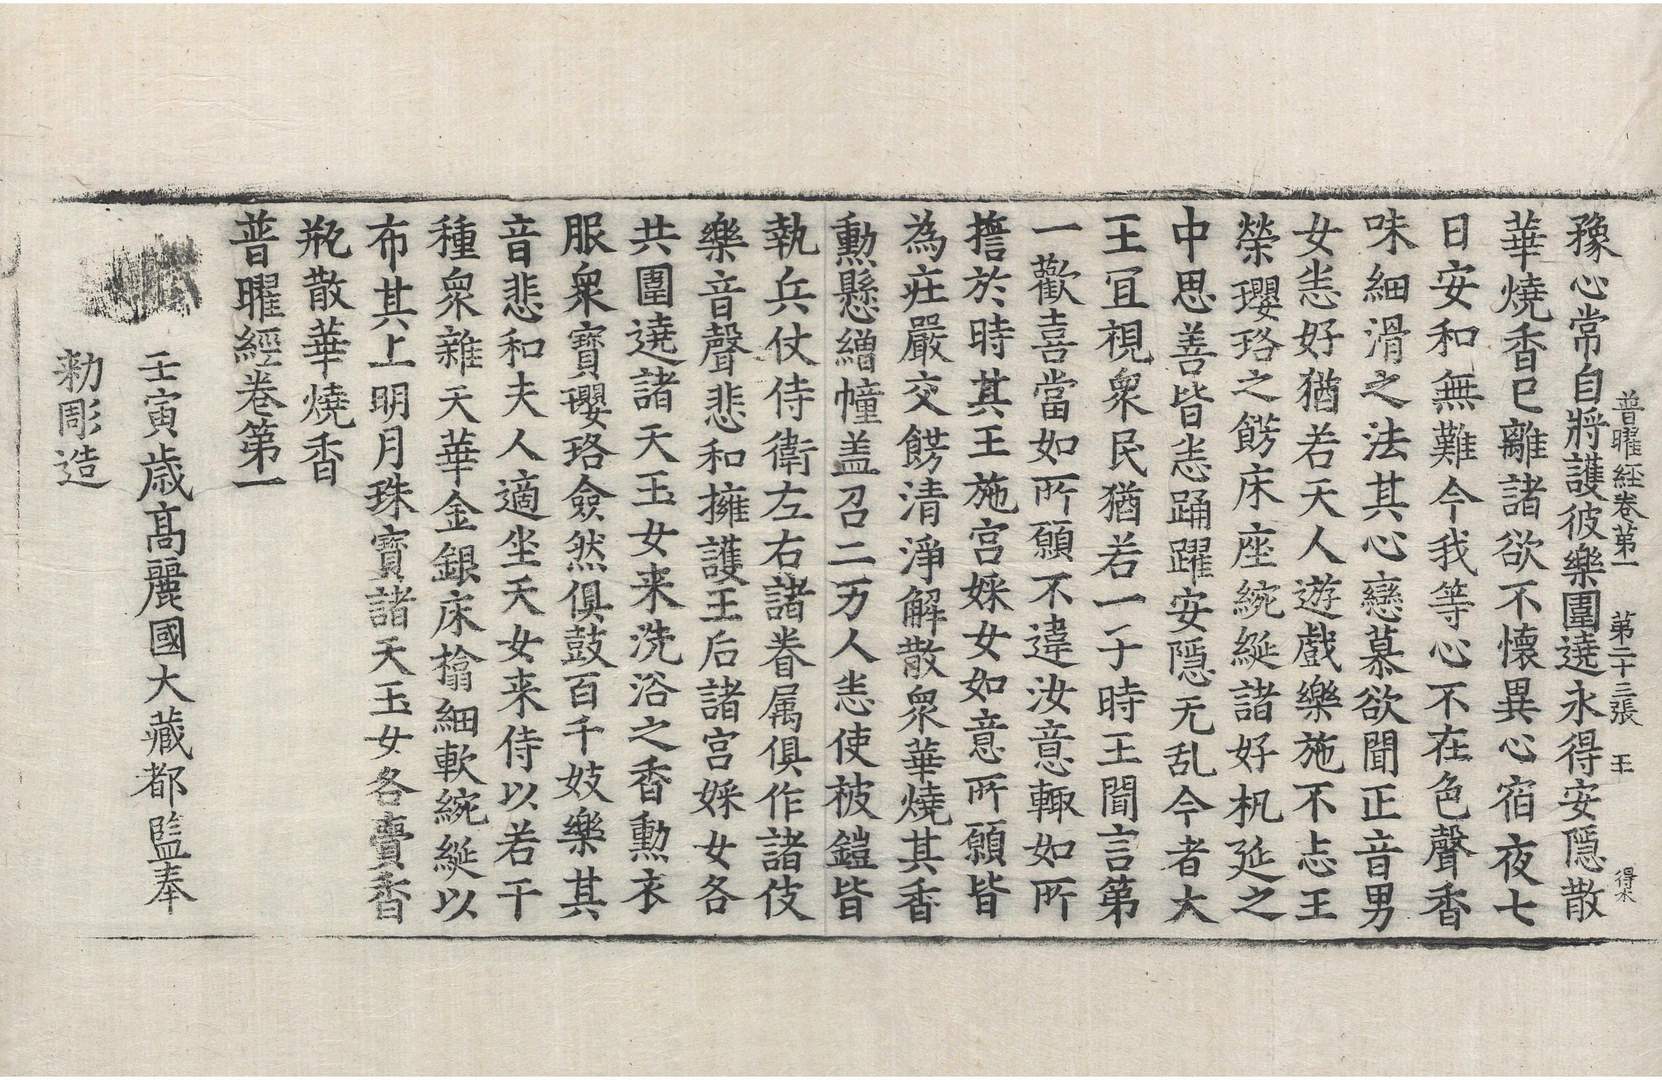 普曜経卷第一　第二十三張　王　得米
豫心常自將護彼樂圍遶永得安隱散
華燒香已離諸欲不懷異心宿夜七
日安和無難今我等心不在色聲香
味細滑之法其心戀慕欲聞正音男
女恙好猶若天人遊戲樂施不忘王
榮瓔珞之餝床座綩綖諸好机延之
中思善皆恙踊躍安隱无乱今者大
王冝視衆民猶若一子時王聞言第
一歡喜當如所願不違汝意輙如所
擔於時其王施宫婇女如意所願皆
為庄嚴交餝清淨解散衆華燒其香
勲懸繒幢盖召二万人恙使被鎧皆
執兵仗侍衛左右諸眷属俱作諸伎
樂音聲悲和擁護王后諸宫婇女各
共圍遶諸天玉女来洗浴之香勲衣
服衆寶瓔珞僉然俱鼓百千妓樂其
音悲和夫人適坐天女来侍以若干
種衆雜天華金銀床㩉細軟綩綖以
布其上明月珠寶諸天玉女各賷香
瓶散華燒香
普曜經卷第一
壬寅歳高麗國大藏都監奉
勅彫造